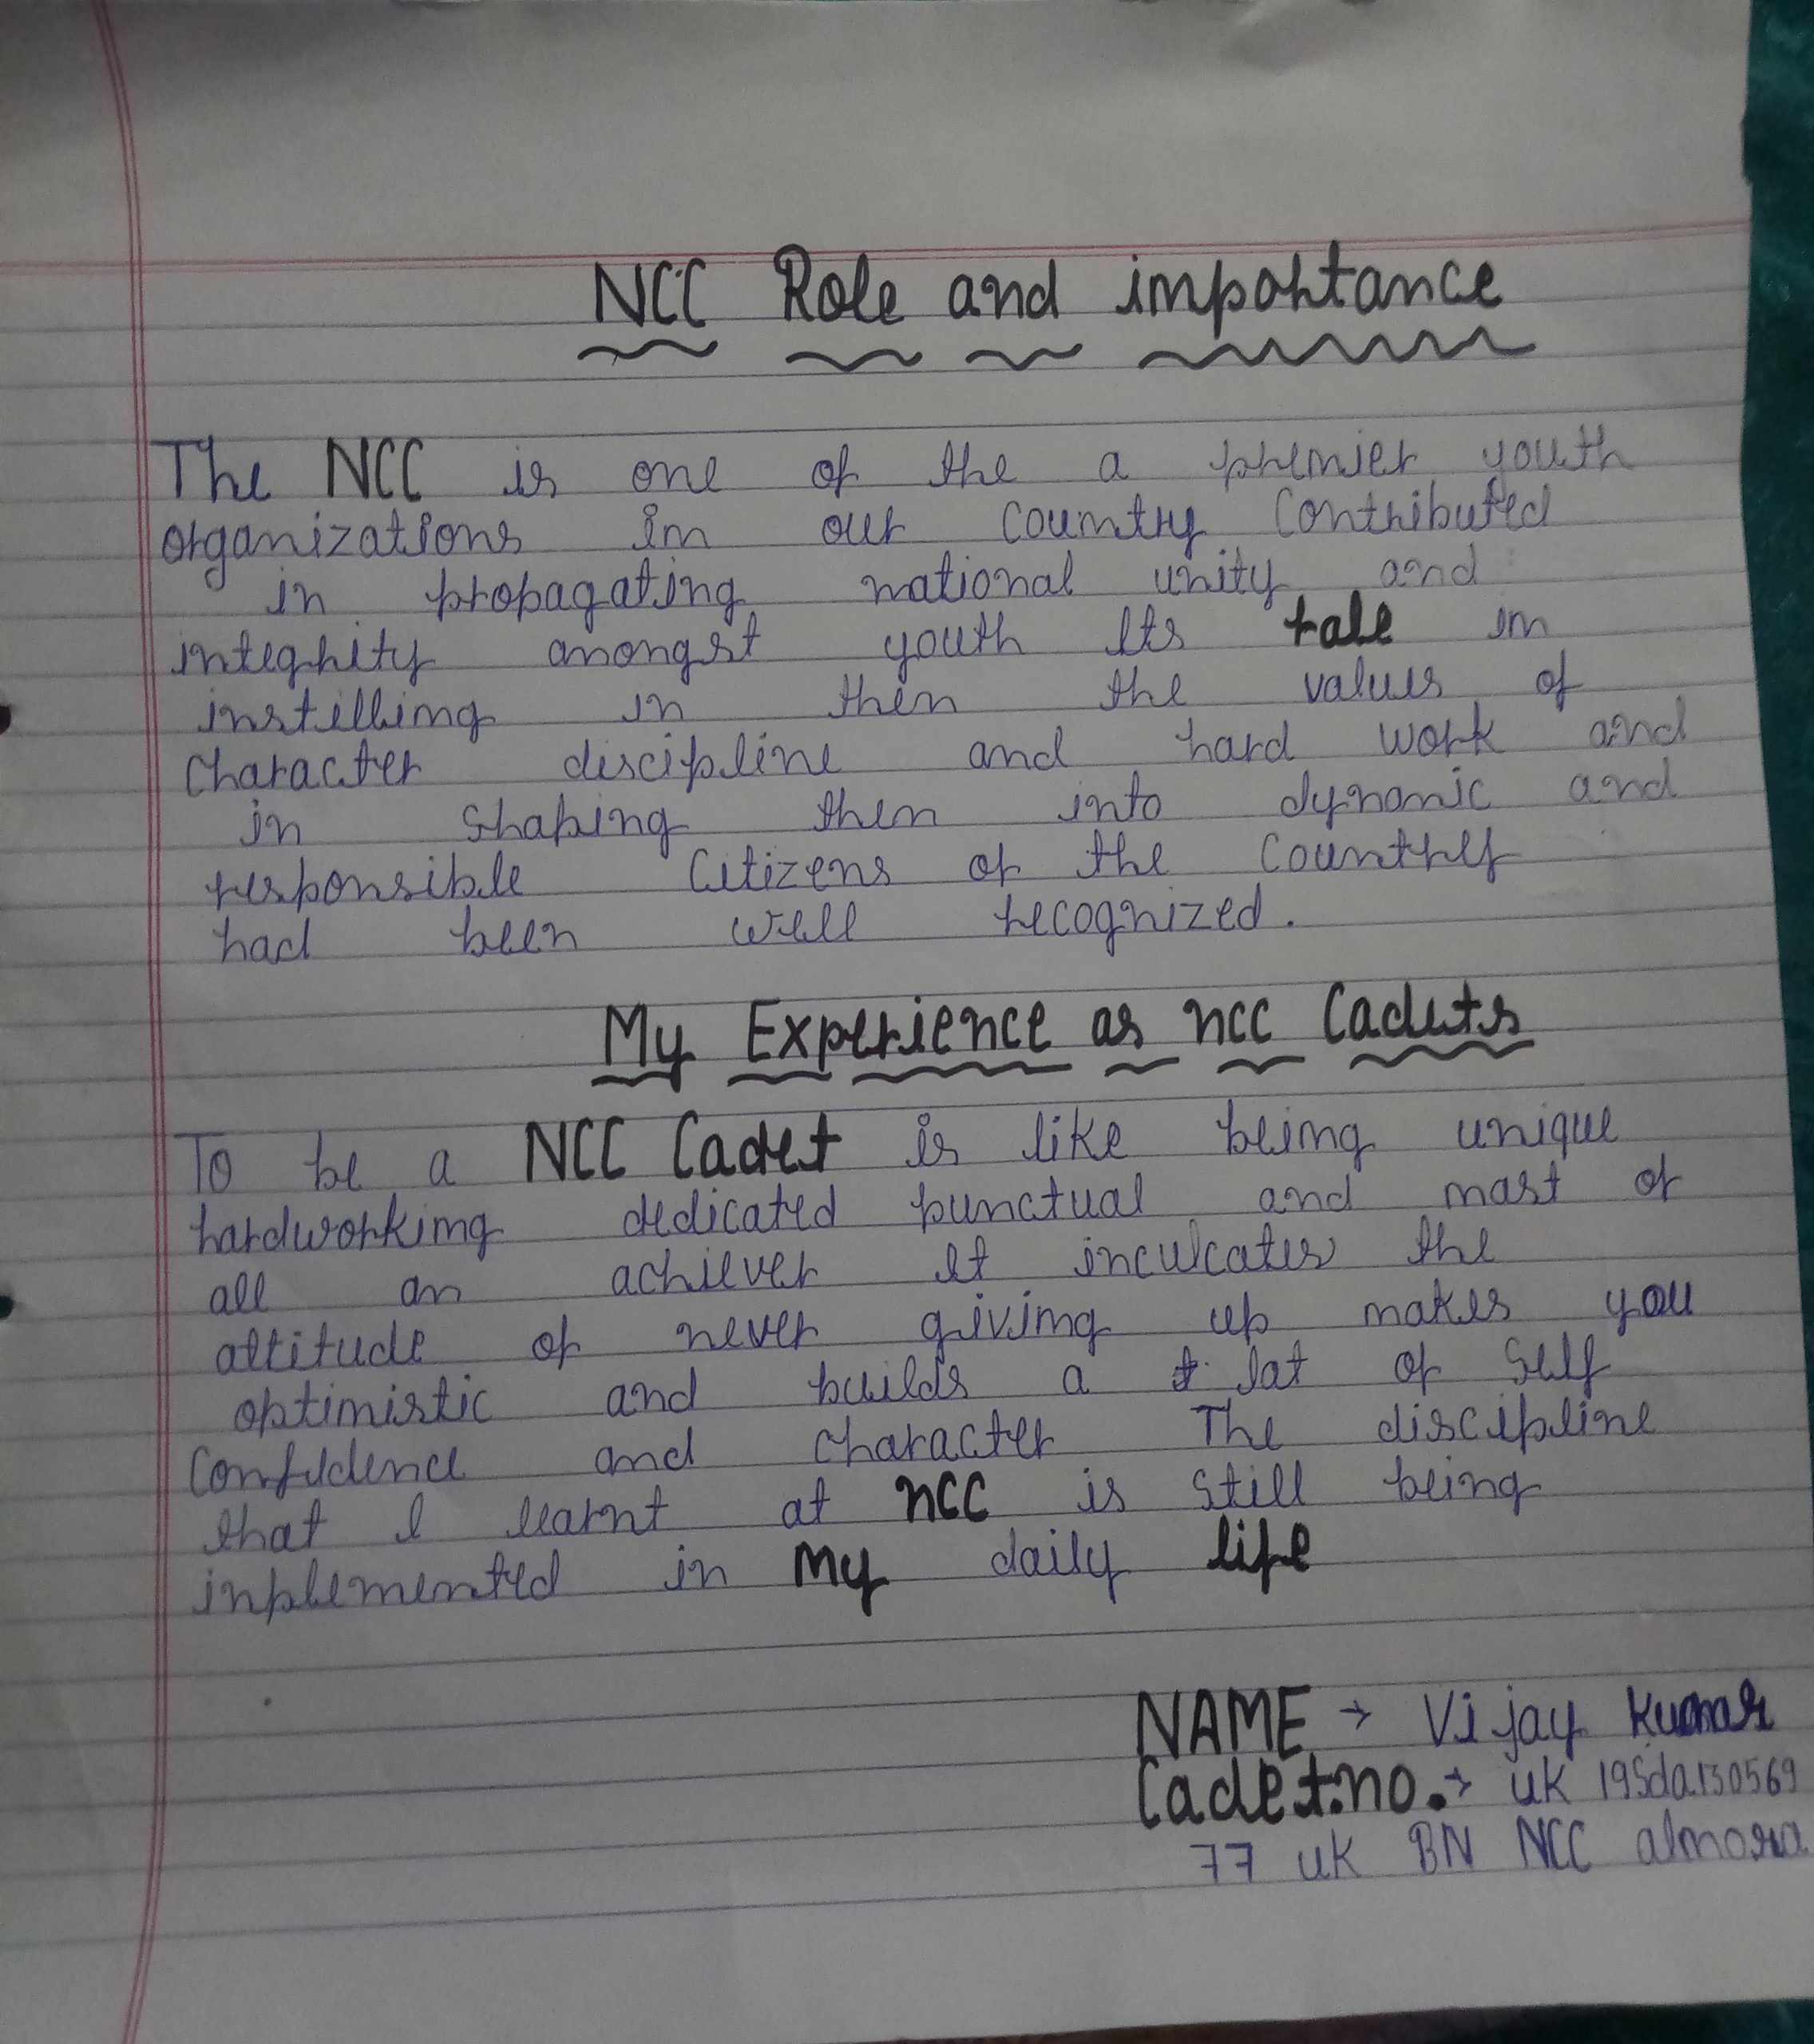 NCC Role and importance
The NCC is one of the a premier youth
organizations in our country Contributed
in propagating national unity and
integrity amongst youth Its role in
instilling in then the values of
character discipline and hard work and
in shaping then into dynamic and
responsible Citizens of the country
had been well recognized.
My Experience as ncc Cadets
To be a NCC Cadet is like being unique
hardworking dedicated punctual and mast of
all an achiever It inculcates the
attitude of never giving up makes you
optimistic and builds a lat of self
Confidence and character The discipline
that I learnt at ncc is still being
inplemented in My daily life
NAME → Vijay Kumar
Cadet.no. → UK 19Sda130569
77 UK BN NCC almora